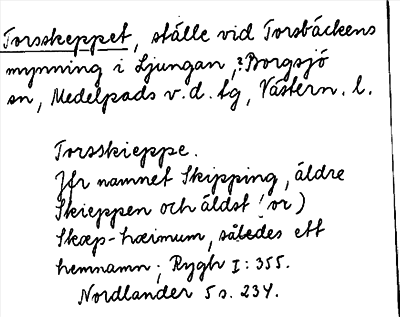 Torsskeppet, ställe vid Torsbäckens
mynning i Ljungan, ? Borgsjö
sn, Medelpads v. d. tg, Västern. l.
Torsskieppe.
Jfr namnet Skipping, äldre
Skieppen och äldst (or)
Skæp-hæimum, således ett
hemnamn; Rygh I: 355.
Nordlander 5 s. 234.